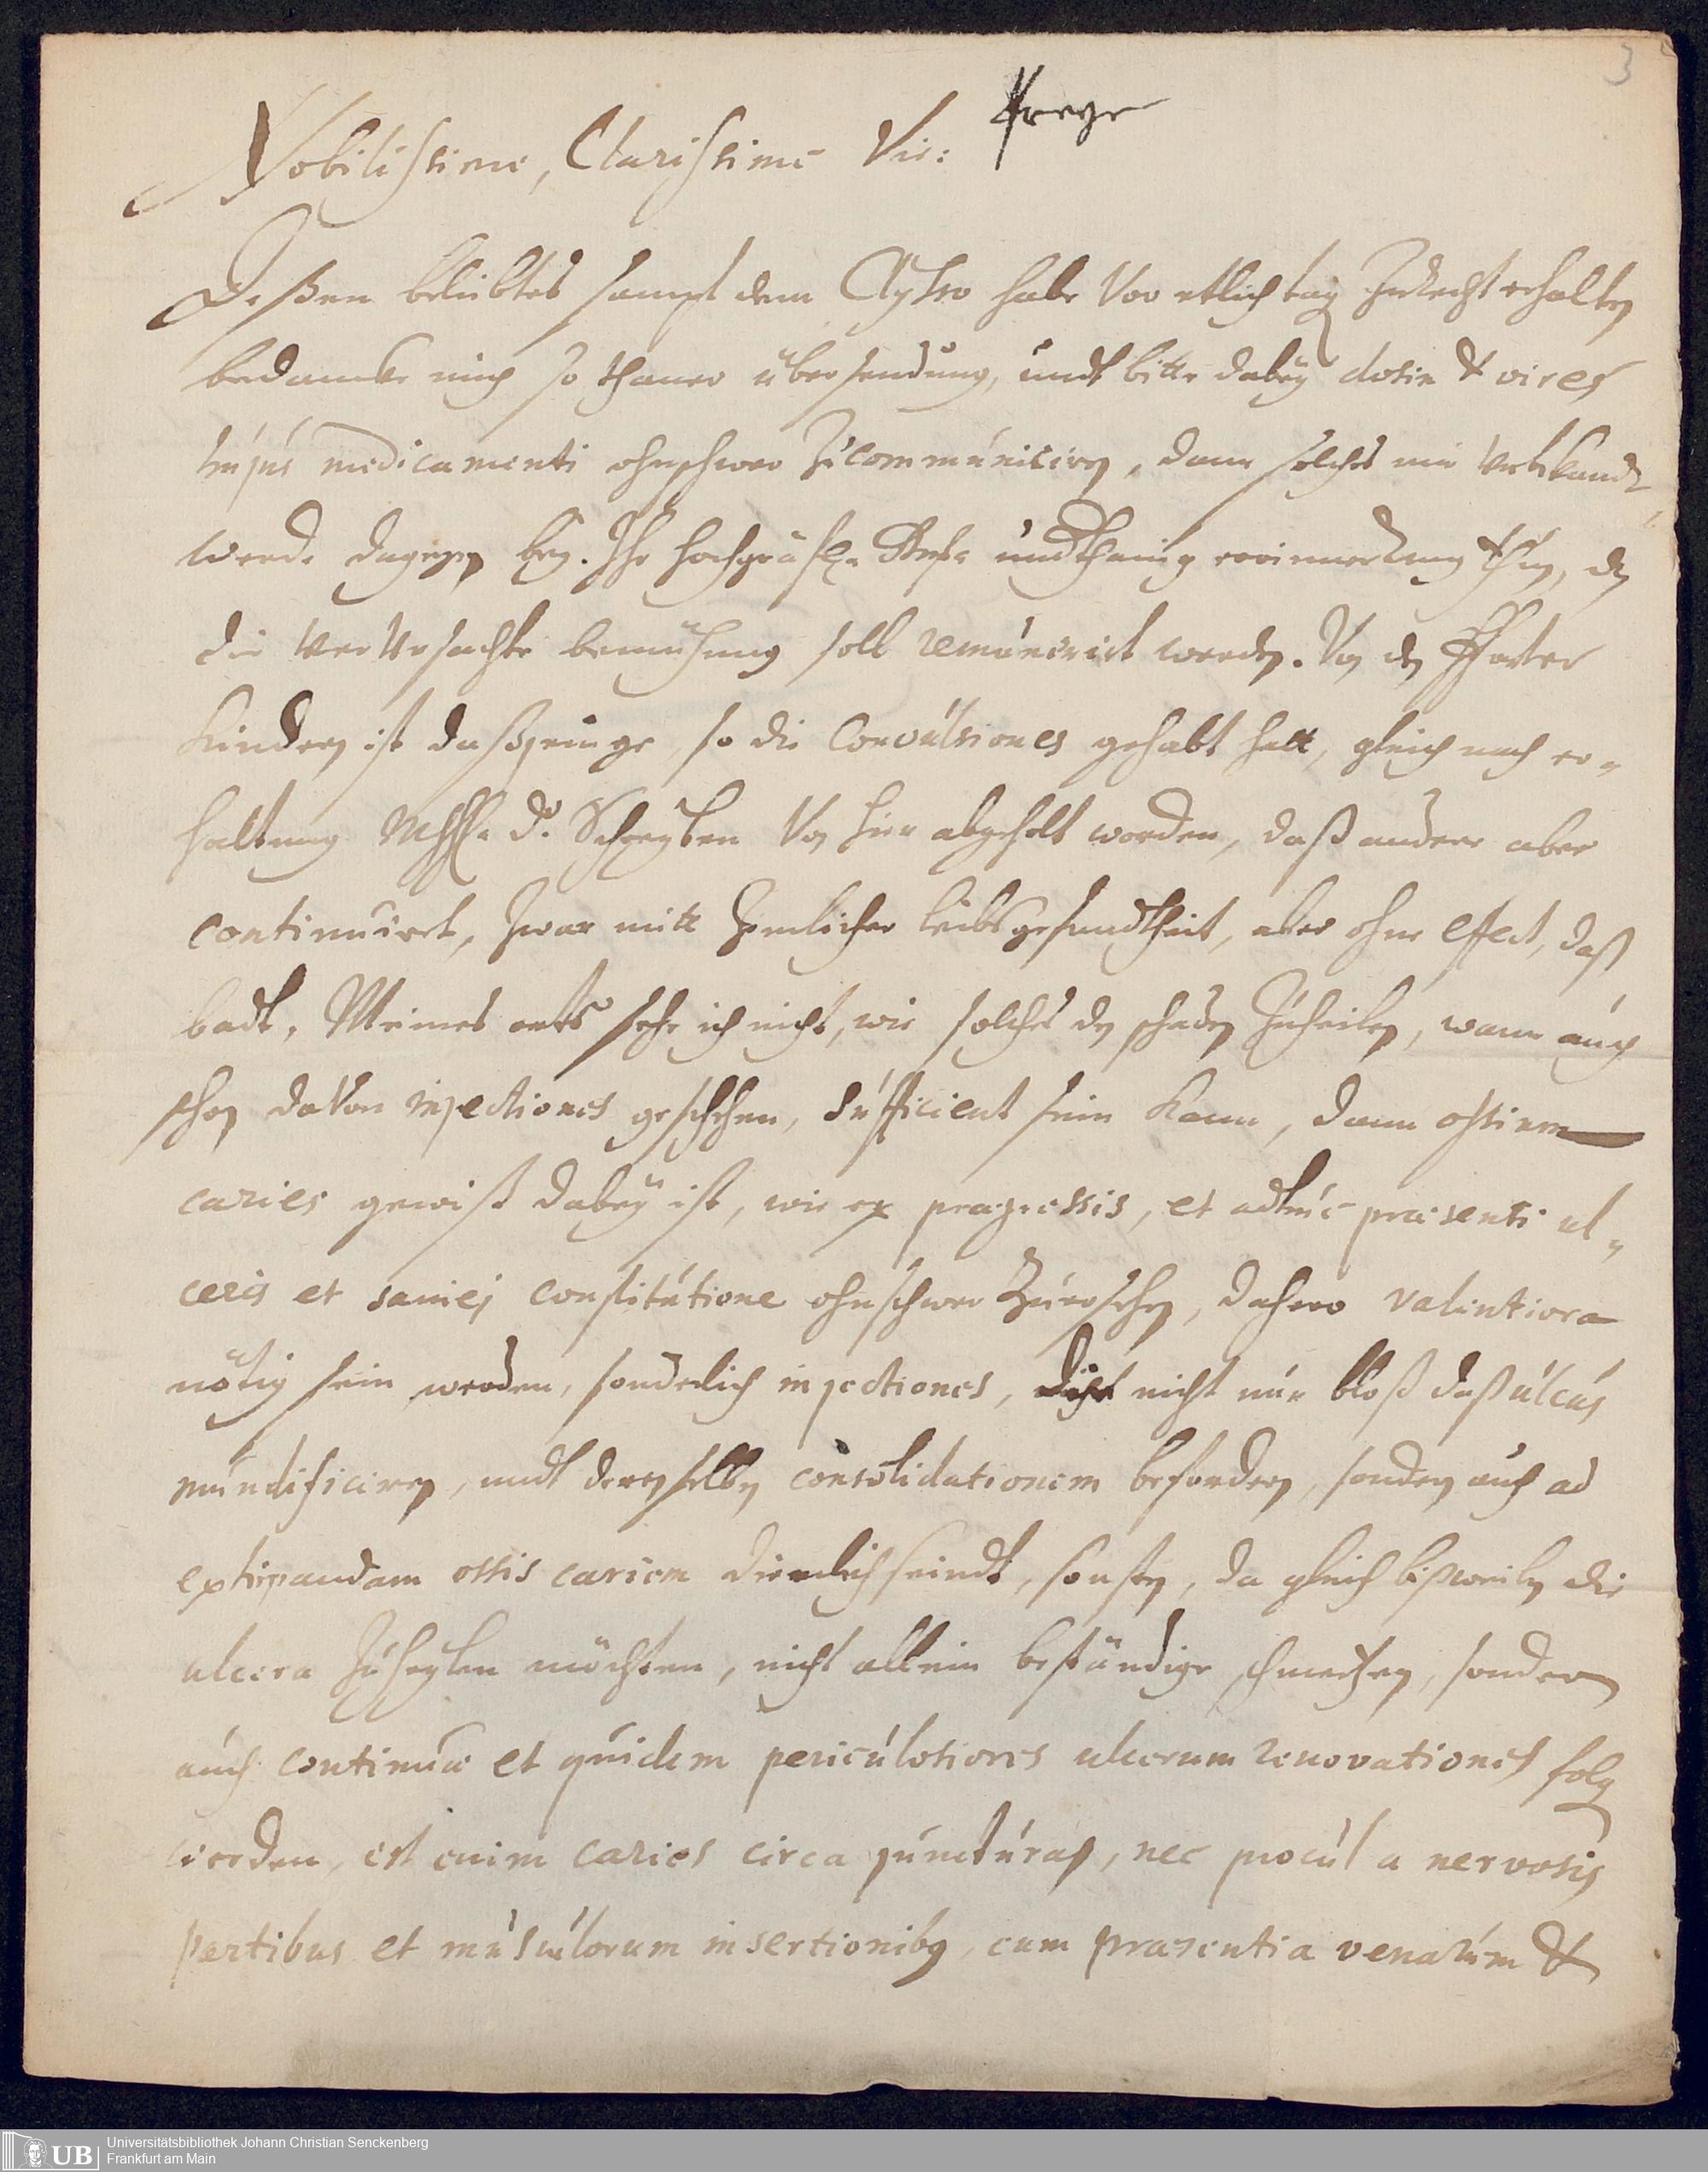 3
Nobilissime, Clarissime Vir:
Deßen beliebtes sampt dem habe vor etlich tag zurecht erhalten
bedancke mich so thaner übersendung, undt bitte dabey dosin & vires
hujus medicamenti ohnschwer zu communiciren, dann solches mir unbekandt
werde dagegen bey Ihr hochgräfl. underthänig erinnerung thun, dz
die verursachte bemühung soll remunerirt werden. Von den Pfarrer
Kindern ist daßjenige, so die Convulsiones gehabt hatt, gleich nach er-
haltung Mhhl. dº. Schreyben von hier abgeholt worden, daß andere aber
continuirt, zwar mitt zimlicher leibsgesundtheit, aber ohne effect, daß
badt. Meines orts sehe ich nicht, wie solches den schaden zuheilen, wann auch
schon davon injectiones geschehen, sufficient sein kann, dann ossium
caries gewiß dabey ist, wie ex praegressis, et adhuc praesenti ul-
ceris et saniej constitutione ohnschwer zuersehen, dahero valentiora
nötig sein werden, sonderlich injectiones, nicht nur bloß daß ulcus
mundificiren, undt desselben consolidationem befordern, sondern auch ad
extirpandam ossis cariem dienlich seindt, sonsten, da gleich bißweilen die
ulcera zuheylen möchten, nicht allein beständige schmertzen, sondern
auch continuae et quidem periculosiores ulcerum renovationes folg
werden, est enim caries circa juncturas, nec procul a nervosis
partibus et musculorum insertionibq, cum praesentia venarum &
UB
Universitätsbibliothek Johann Christian Senckenberg
Frankfurt am Main